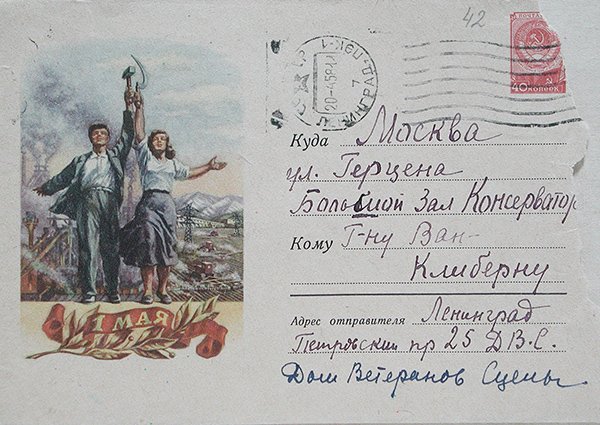 42
ПОЧТА
40 КОПЕЕК
ЛЕНИНГРАД
20-4 58
Куда Москва
ул. Герцена
Большой Зал Консерватор
Кому Г-ну Ван-
Клиберну
Адрес отправителя Ленинград
Петровский пр 25 Д.В.С.
Дом Ветеранов Сцены
1 МАЯ